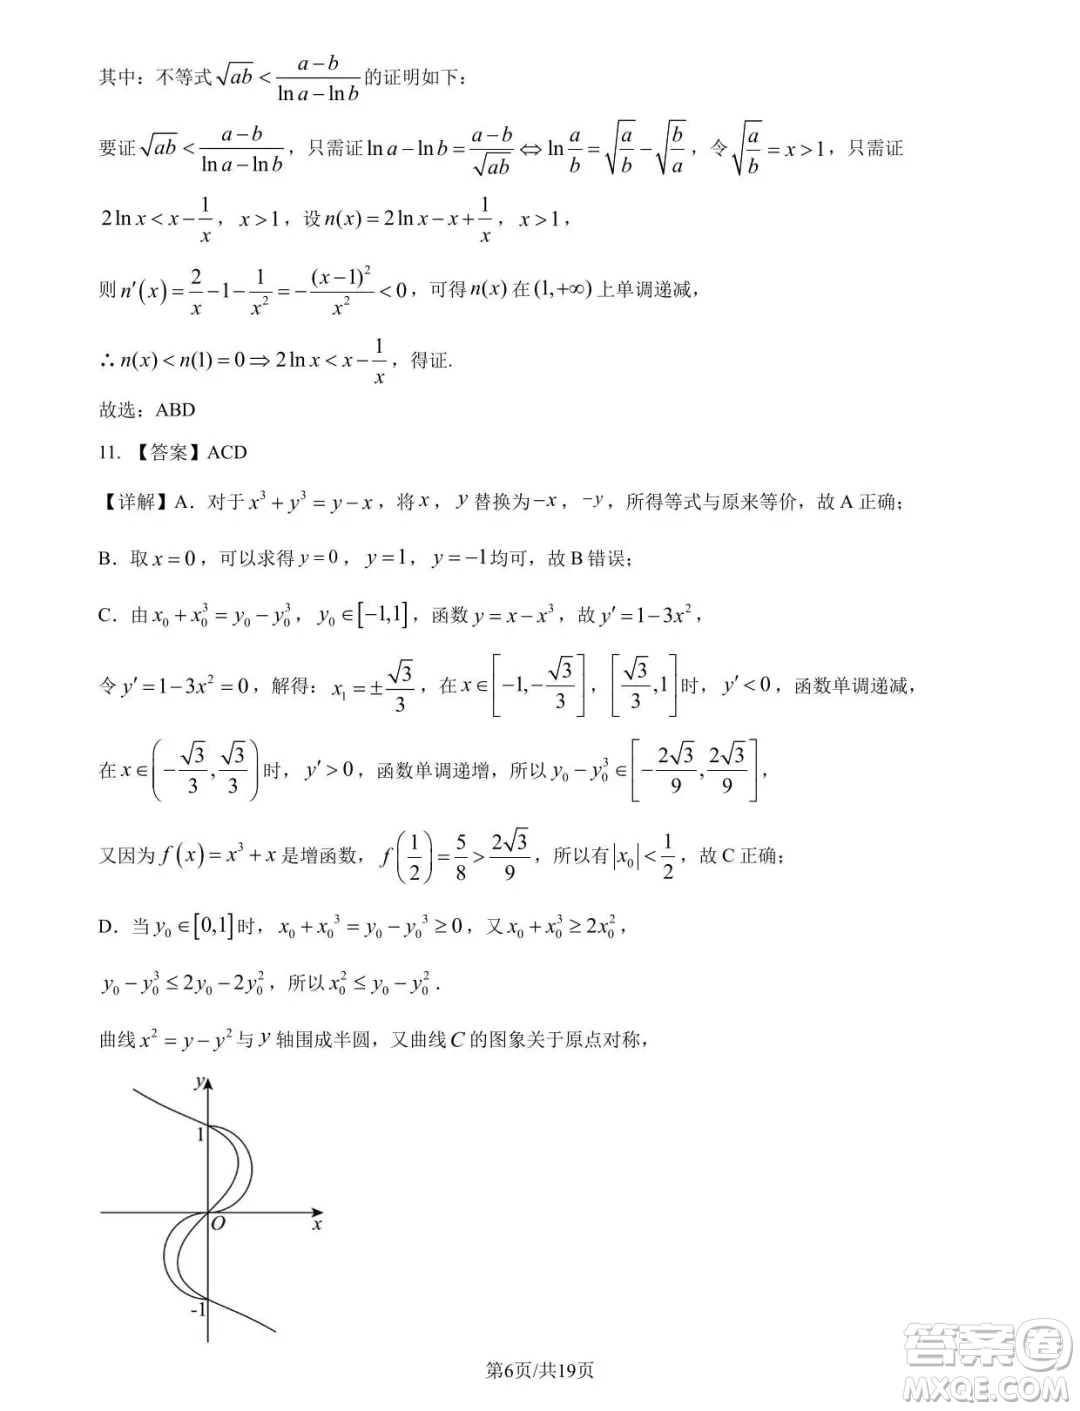 其中：不等式 √ab < (a−b)/(ln a−ln b) 的证明如下：
要证 √ab < (a−b)/(ln a−ln b)，只需证 ln a−ln b = (a−b)/√ab ⇔ ln a/b = √(a/b) − √(b/a)，令 √(a/b) = x > 1，只需证
2ln x < x − 1/x，x > 1，设 n(x) = 2ln x − x + 1/x，x > 1，
则 n′(x) = 2/x − 1 − 1/x² = −(x−1)²/x² < 0，可得 n(x) 在 (1,+∞) 上单调递减，
∴ n(x) < n(1) = 0 ⇒ 2ln x < x − 1/x，得证.
故选：ABD
11. 【答案】ACD
【详解】A．对于 x³ + y³ = y − x，将 x，y 替换为 −x，−y，所得等式与原来等价，故 A 正确；
B．取 x = 0，可以求得 y = 0，y = 1，y = −1 均可，故 B 错误；
C．由 x₀ + x₀³ = y₀ − y₀³，y₀ ∈ [−1,1]，函数 y = x − x³，故 y′ = 1 − 3x²，
令 y′ = 1 − 3x² = 0，解得：x₁ = ±√3/3，在 x ∈ [−1, −√3/3]，[√3/3, 1] 时，y′ < 0，函数单调递减，
在 x ∈ (−√3/3, √3/3) 时，y′ > 0，函数单调递增，所以 y₀ − y₀³ ∈ [−2√3/9, 2√3/9]，
又因为 f(x) = x³ + x 是增函数，f(1/2) = 5/8 > 2√3/9，所以有 |x₀| < 1/2，故 C 正确；
D．当 y₀ ∈ [0,1] 时，x₀ + x₀³ = y₀ − y₀³ ≥ 0，又 x₀ + x₀³ ≥ 2x₀²，
y₀ − y₀³ ≤ 2y₀ − 2y₀²，所以 x₀² ≤ y₀ − y₀²．
曲线 x² = y − y² 与 y 轴围成半圆，又曲线 C 的图象关于原点对称，
y
1
O
x
-1
第6页/共19页
答案卷
MXQE.COM